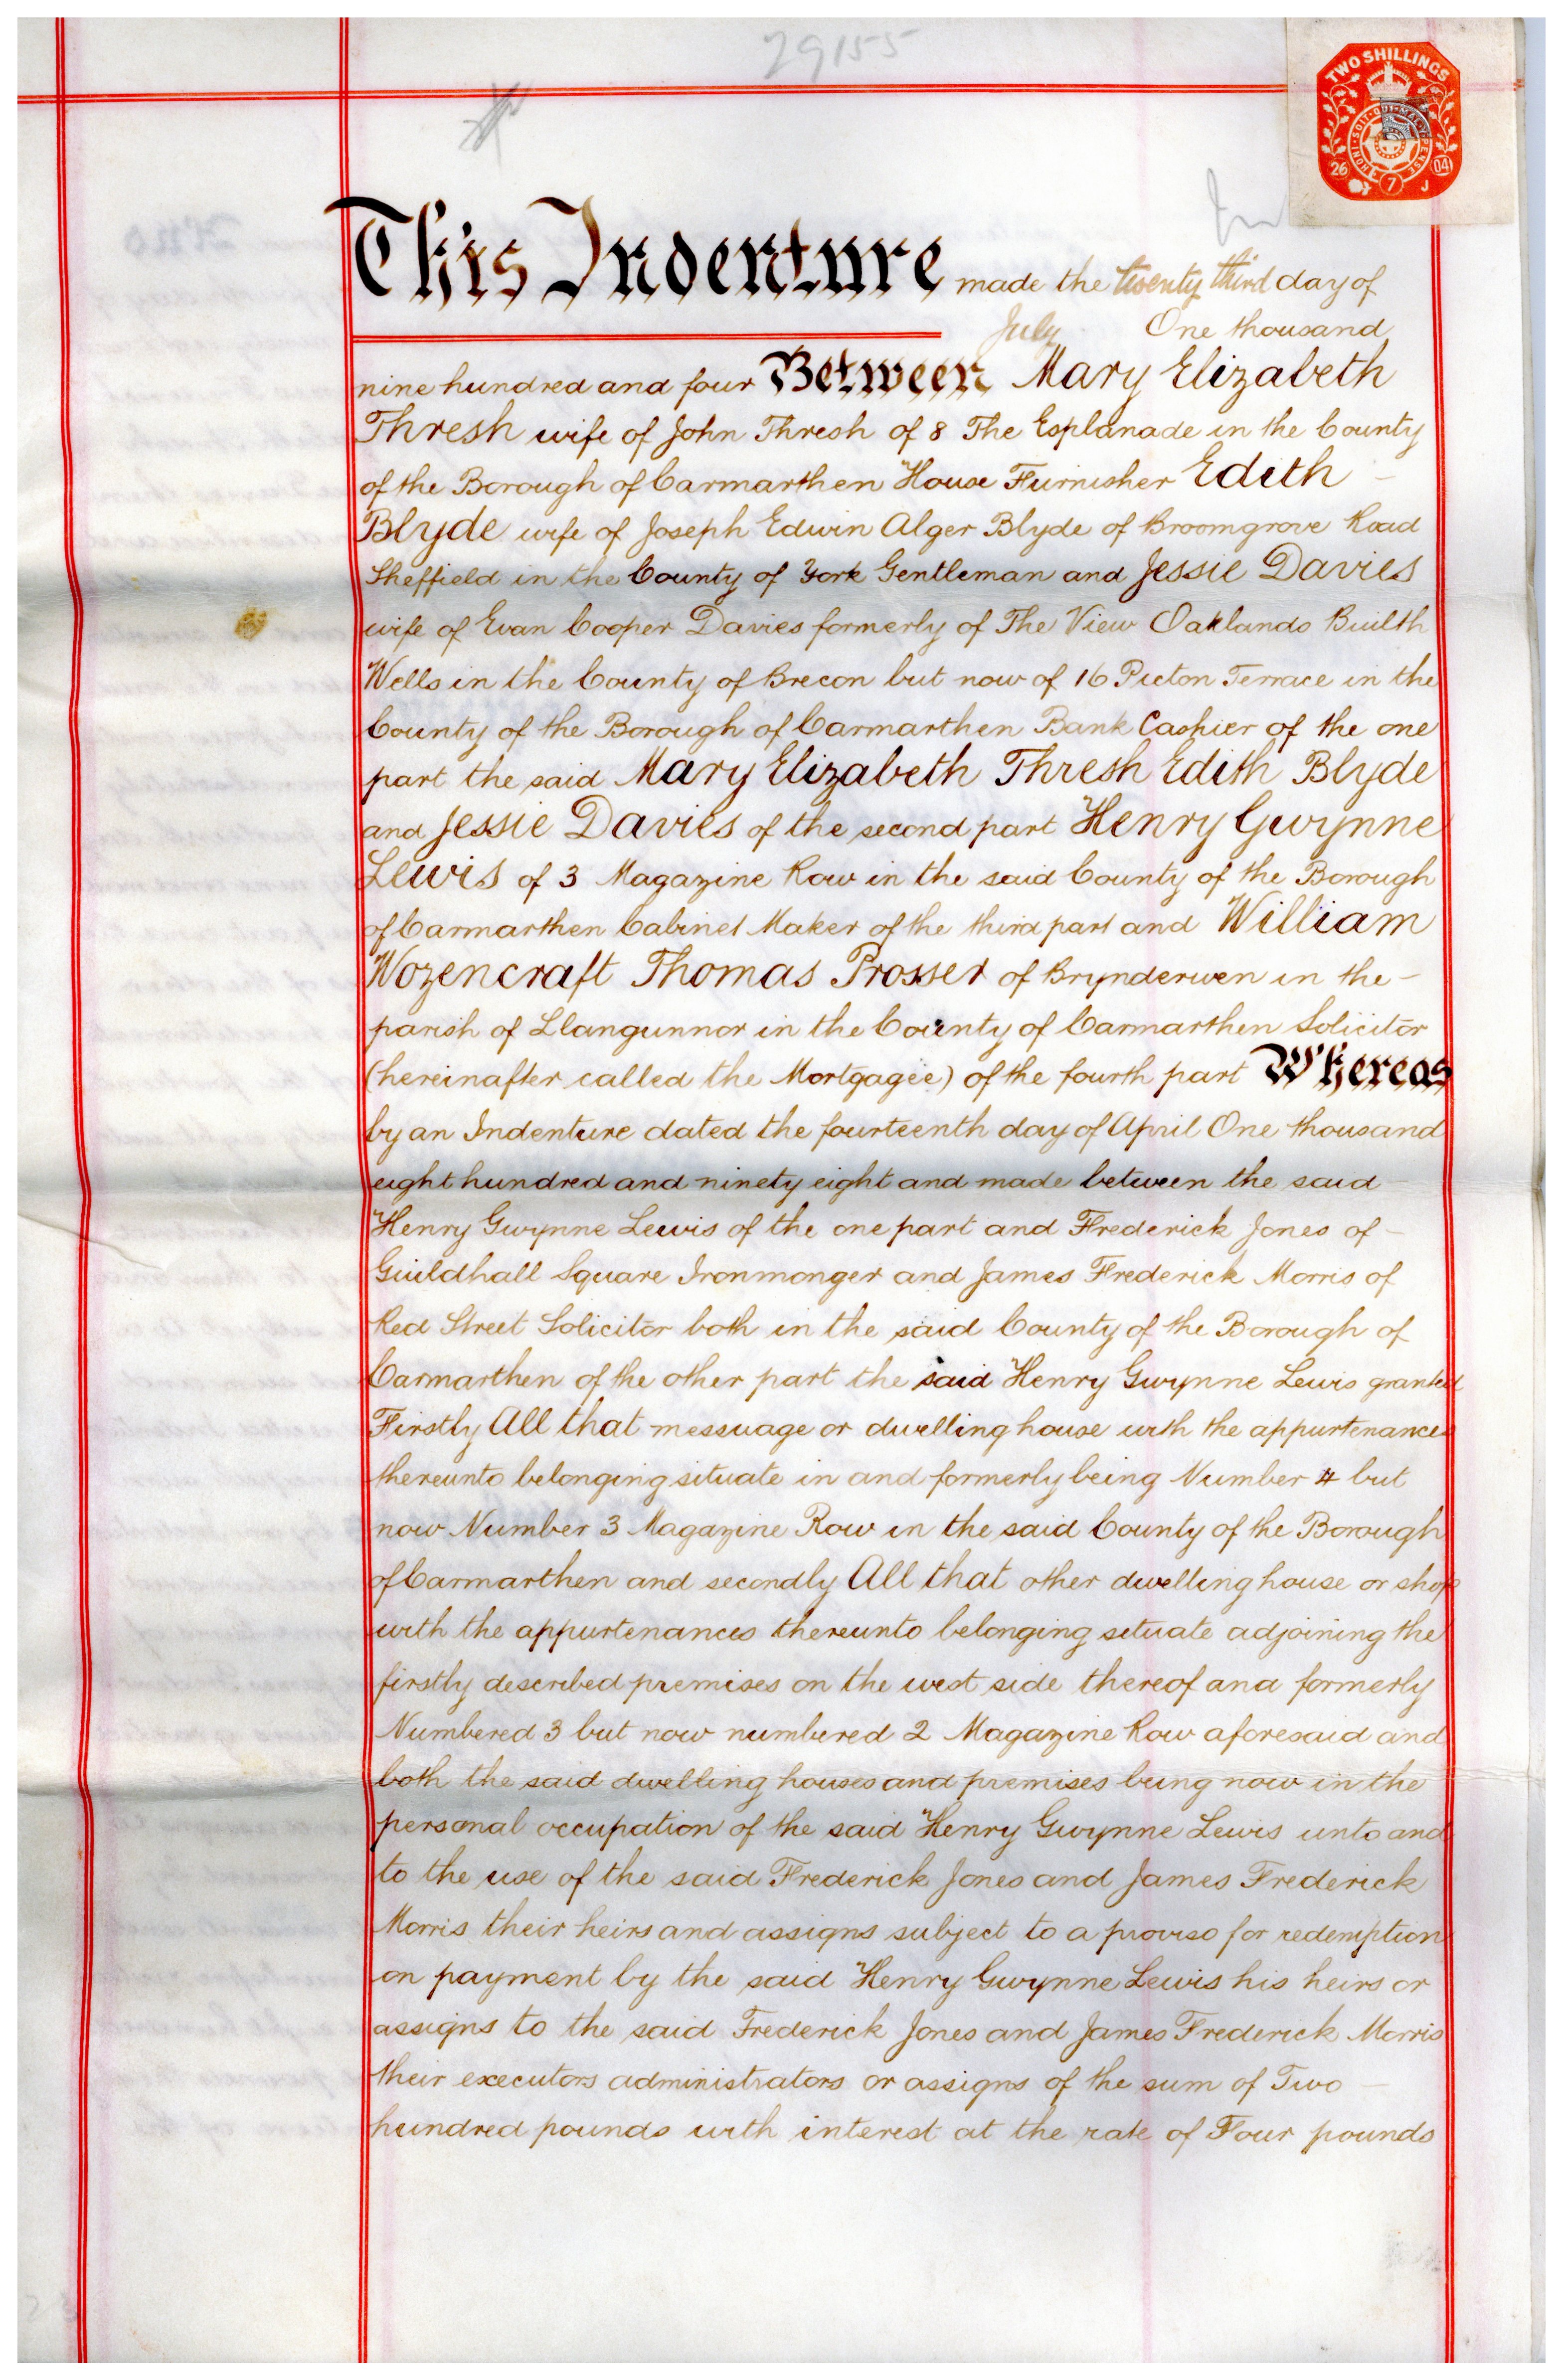 29155
TWO SHILLINGS
HONI · SOIT · QUI · MAL · Y · PENSE
26 7 04
J
This Indenture made the twenty third day of
July One thousand
nine hundred and four Between Mary Elizabeth
Thresh wife of John Thresh of 8 The Esplanade in the County
of the Borough of Carmarthen House Furnisher Edith –
Blyde wife of Joseph Edwin Alger Blyde of Broomgrove Road
Sheffield in the County of York Gentleman and Jessie Davies
wife of Evan Cooper Davies formerly of The View Oaklands Builth
Wells in the County of Brecon but now of 16 Picton Terrace in the
County of the Borough of Carmarthen Bank Cashier of the one
part the said Mary Elizabeth Thresh Edith Blyde
and Jessie Davies of the second part Henry Gwynne
Lewis of 3 Magazine Row in the said County of the Borough
of Carmarthen Cabinet Maker of the third part and William
Wozencraft Thomas Prosser of Brynderwen in the –
parish of Llangunnor in the County of Carmarthen Solicitor
(hereinafter called the Mortgagee) of the fourth part Whereas
by an Indenture dated the fourteenth day of April One thousand
eight hundred and ninety eight and made between the said
Henry Gwynne Lewis of the one part and Frederick Jones of –
Guildhall Square Ironmonger and James Frederick Morris of
Red Street Solicitor both in the said County of the Borough of
Carmarthen of the other part the said Henry Gwynne Lewis granted
Firstly All that messuage or dwelling house with the appurtenances
thereunto belonging situate in and formerly being Number 4 but
now Number 3 Magazine Row in the said County of the Borough
of Carmarthen and secondly All that other dwelling house or shop
with the appurtenances thereunto belonging situate adjoining the
firstly described premises on the west side thereof and formerly
Numbered 3 but now numbered 2 Magazine Row aforesaid and
both the said dwelling houses and premises being now in the
personal occupation of the said Henry Gwynne Lewis unto and
to the use of the said Frederick Jones and James Frederick
Morris their heirs and assigns subject to a proviso for redemption
on payment by the said Henry Gwynne Lewis his heirs or
assigns to the said Frederick Jones and James Frederick Morris
their executors administrators or assigns of the sum of Two –
hundred pounds with interest at the rate of Four pounds